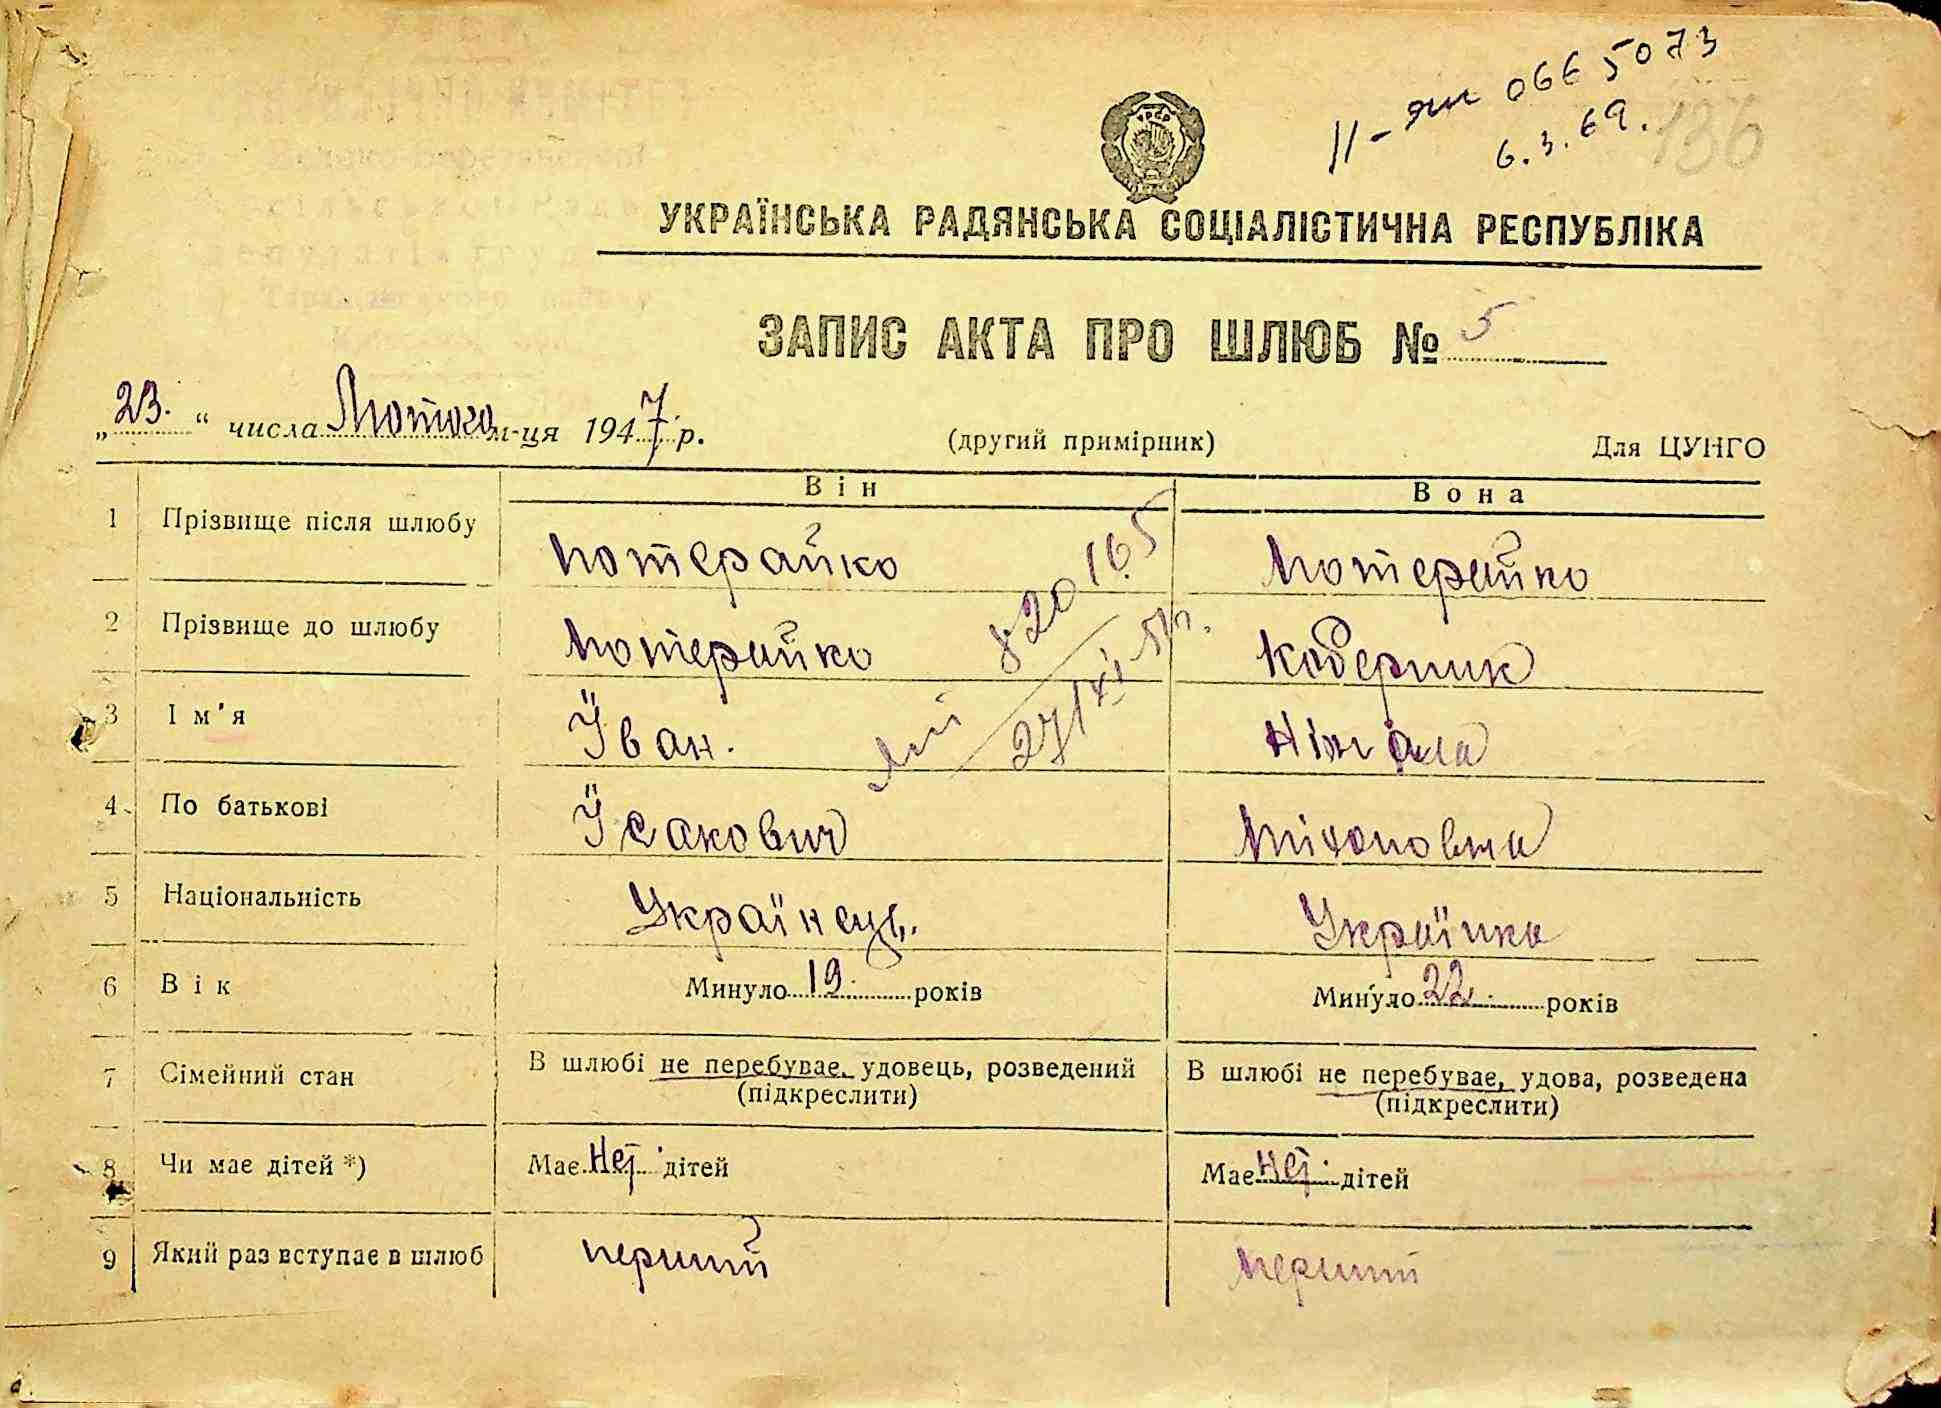 II-ЯШ 0665073
6.3.69.
136
УКРАЇНСЬКА РАДЯНСЬКА СОЦІАЛІСТИЧНА РЕСПУБЛІКА
ЗАПИС АКТА ПРО ШЛЮБ № 5
„23.“ числа Лютого м-ця 1947 р.
(другий примірник)
Для ЦУНГО
Він
Вона
1 Прізвище після шлюбу Потерайко Потерайко
2 Прізвище до шлюбу Потерайко Коберник
3 Ім'я Їван.
4 По батькові Їсакович
5 Національність Українець. Українка
6 Вік Минуло 19. років Минуло 22. років
7 Сімейний стан В шлюбі не перебуває, удовець, розведений В шлюбі не перебуває, удова, розведена
(підкреслити) (підкреслити)
8 Чи має дітей *) Має Неј дітей Має неј дітей
9 Який раз вступає в шлюб перший перший